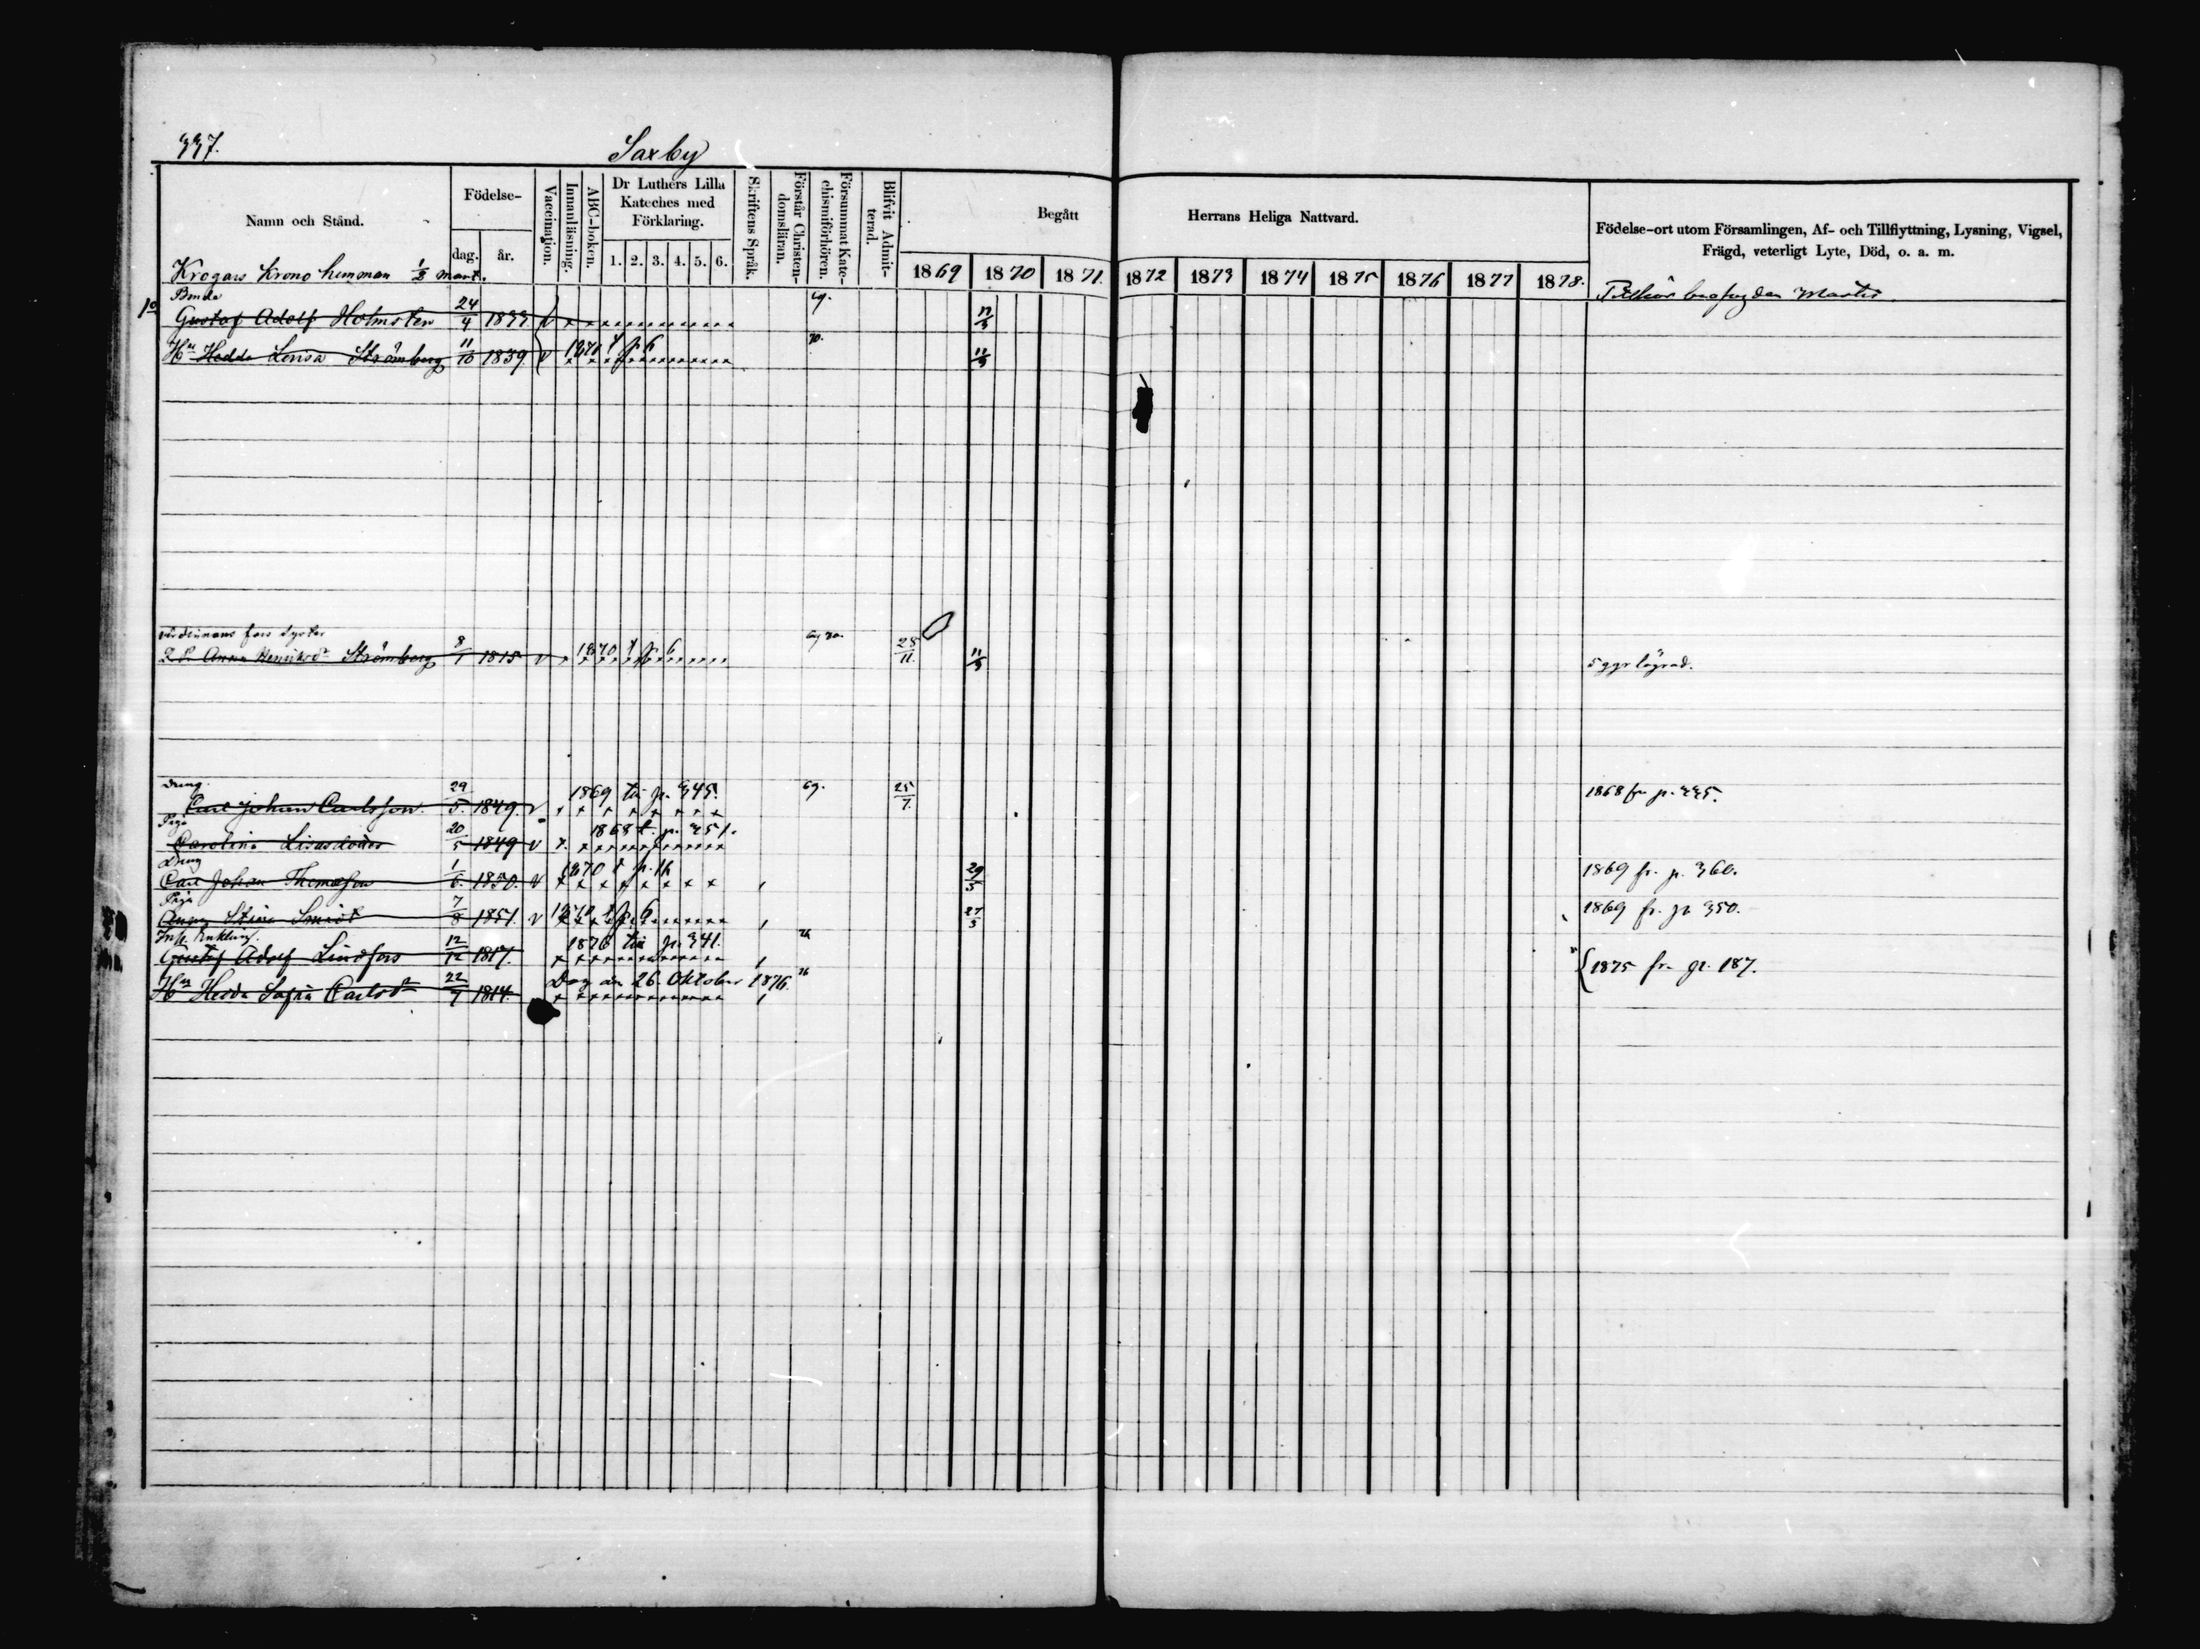 337.
Saxby
Namn och Stånd.
Födelse-
dag.
år.
Vaccination.
Innanläsning.
ABC-boken.
Dr Luthers Lilla Kateches med Förklaring.
1. 2. 3. 4. 5. 6.
Skriftens Språk.
Förstår Christendomsläran.
Försummat Katechismiförhören.
Blifvit Admitterad.
Begått Herrans Heliga Nattvard.
1869 1870 1871. 1872 1873 1874 1875 1876 1877 1878.
Födelse-ort utom Församlingen, Af- och Tillflyttning, Lysning, Vigsel,
Frägd, veterligt Lyte, Död, o. a. m.
Krogars Krono hemman 1/3 mant.
Bonde
Gustaf Adolf Holmsten 24/4 1833. v 69.
Hu Hedda Lovisa Strömberg 11/10 1839 v 1870 t p. 6 70. 11/3
värdinnans fars syster
Anna Henriksdr Strömberg 8/1 1815 v 1870 t p. 6 69 70. 28/11. 11/3 5 ggr lägrad.
Dreng.
Carl Johan Carlsson 29/5. 1849. v 1869 till p. 345. 69. 25/7. 1868 fr p. 335.
Piga
Carolina Lisasdotter 20/5 1849 v 1868 t. p. 351.
Dreng
Carl Johan Thomasson 1/6. 1850. v 1870 t p. 16 29/3 1869 fr. p. 360.
Piga
Anna Stina 7/8 1851. v 1870 t p. 6 27/3 1869 fr. p. 350.
Inh. Enkling.
Gustaf Adolf Lindfors 12/12 1817. 1876 till p. 341. 76
Hu Hedda Sofia Carlsdr 22/9 1814. Dog den 26 Oktober 1876. 76 1875 fr. p. 187.